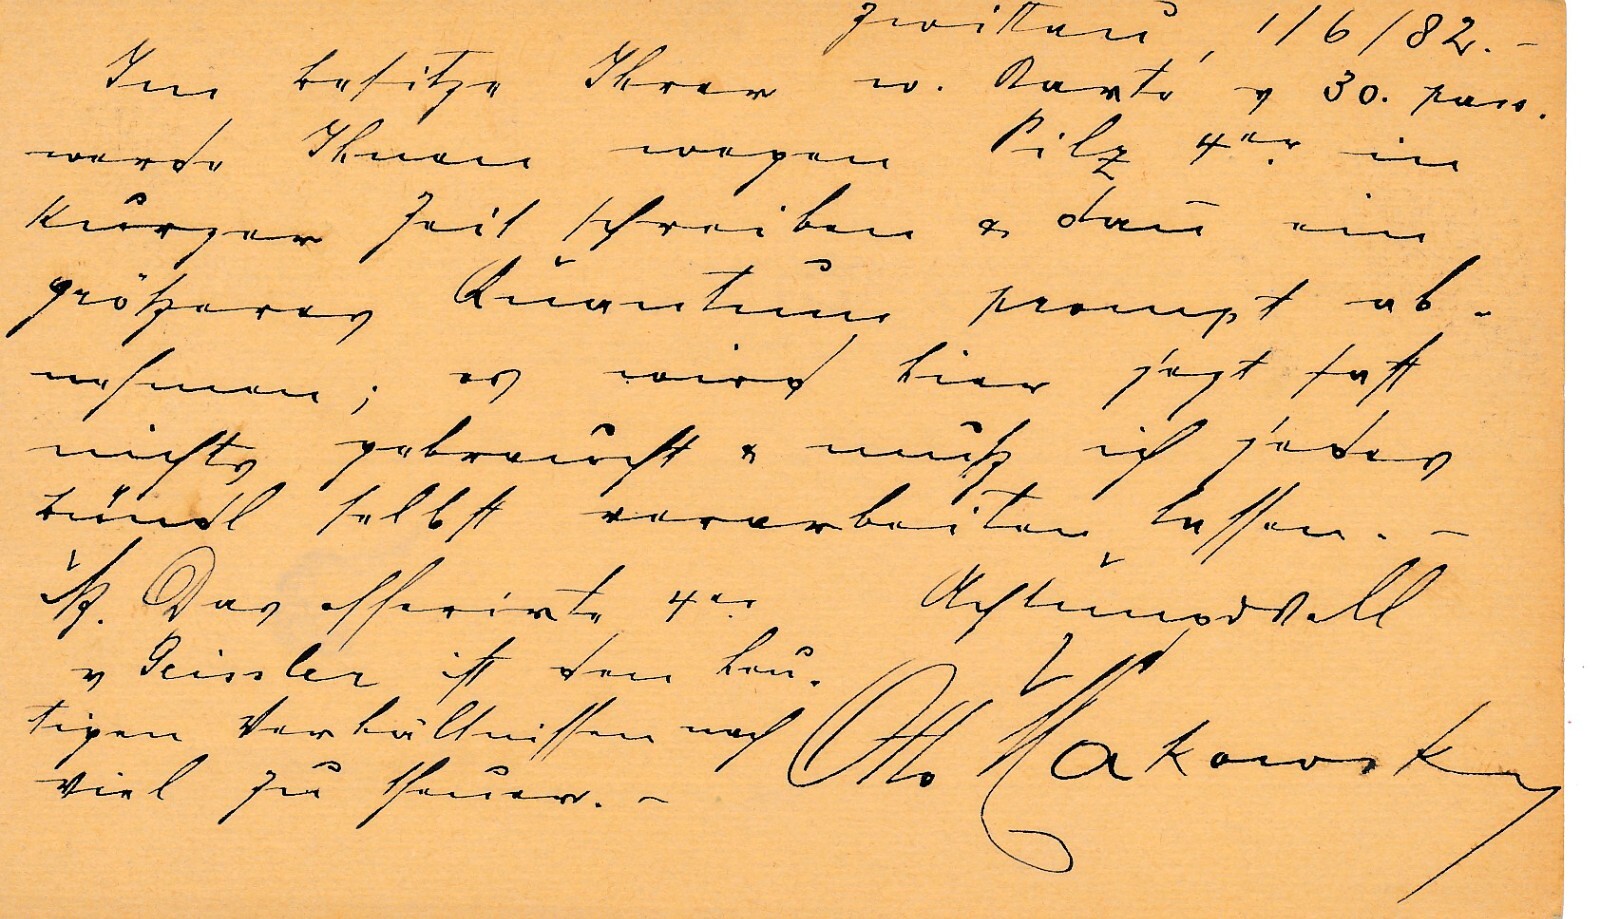 Zwittau, 1/6/82. –
Im besitze Ihrer w. Karte v 30. pass.
werde Ihnen wegen Pilz 4er in
kurzer Zeit schreiben & dan̄ ein
größeres Quantum prompt ab-
nehmen; es wird hier jezt fast
nichts gebraucht & muß ich jedes
bündl selbst verarbeiten lassen. –
Das offerirte 4er
v Geissler ist den heu-
tigen Verhältnissen nach
viel zu theuer. –
Achtungsvoll
Otto Makowsky